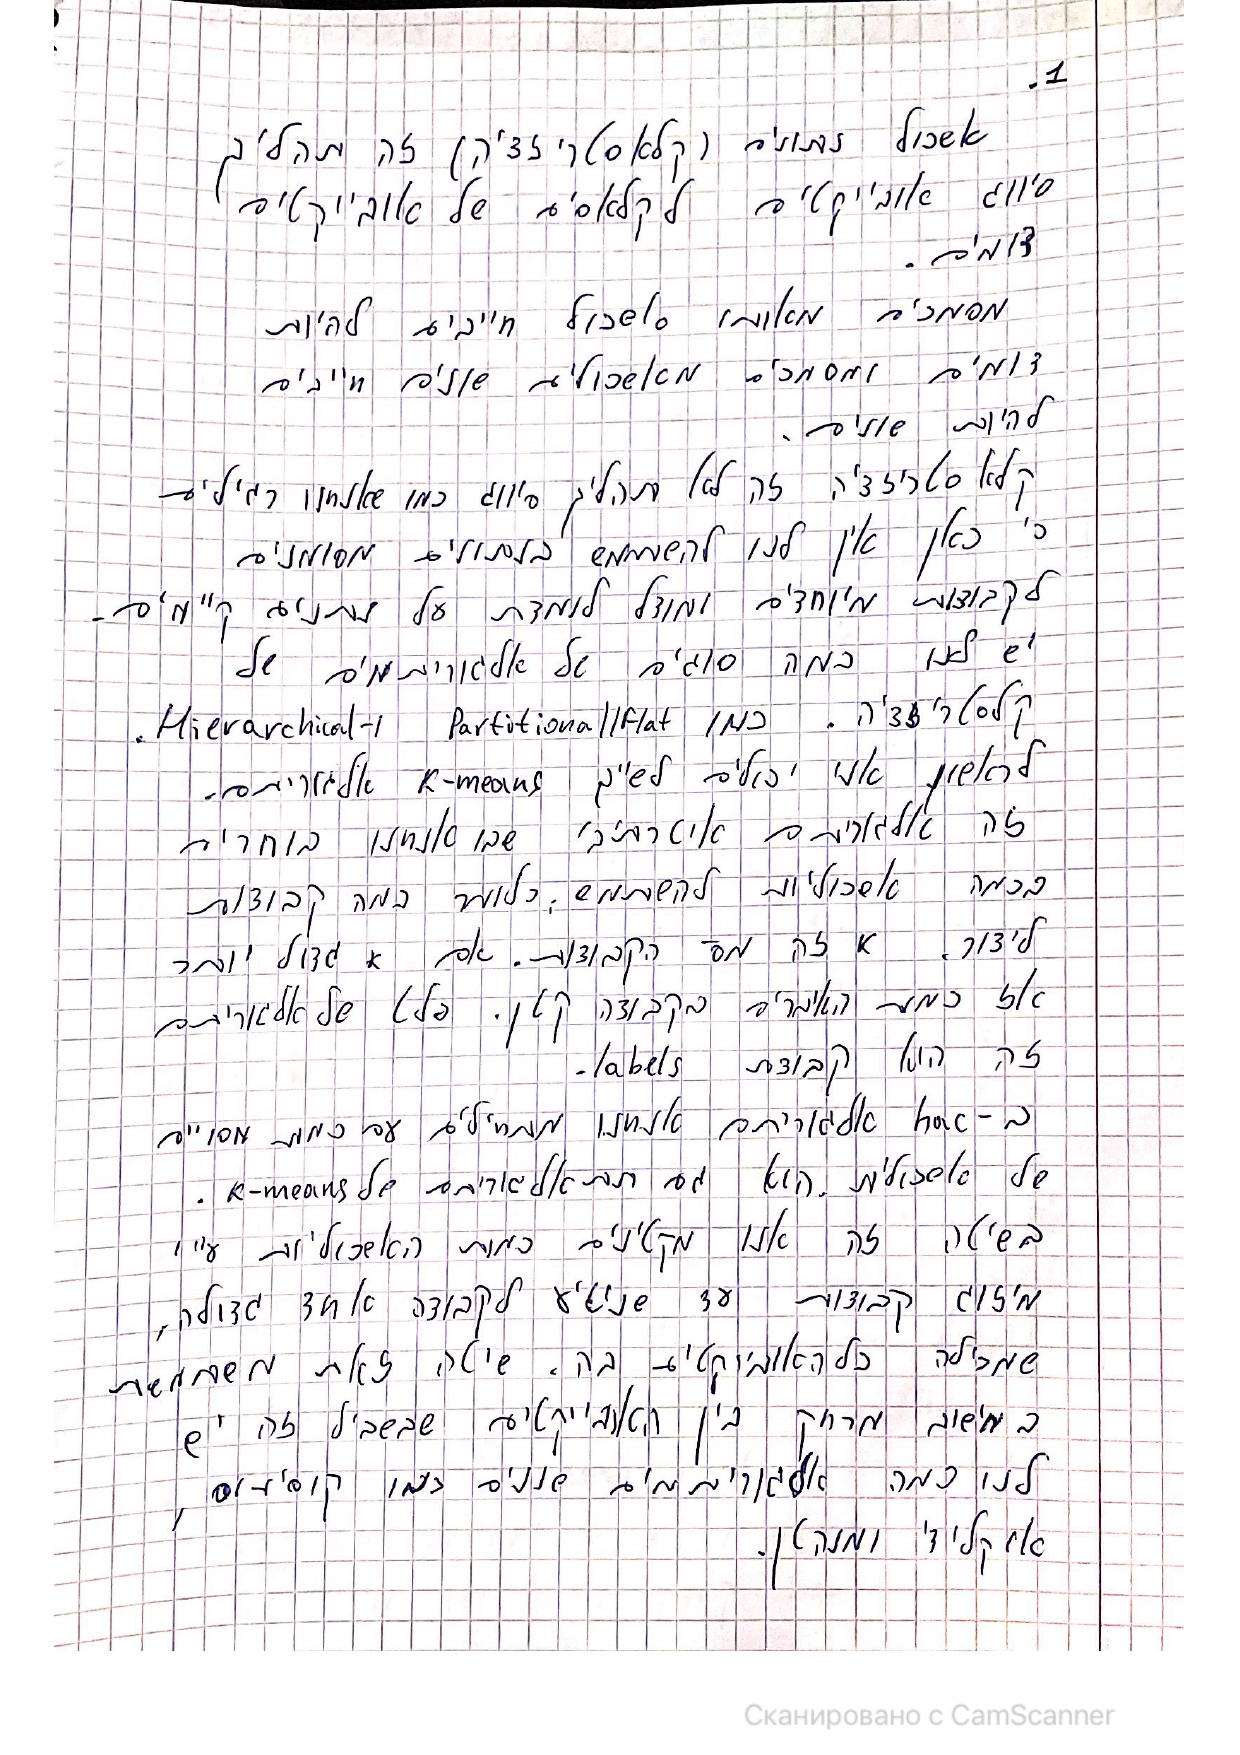 .1
אשכול נתונים (קלאסטריזציה) זה תהליך
סיווג אובייקטים לקלאסים של אובייקטים
דומים.
מסמכים מאותו אשכול חייבים להיות
דומים ומסמכים מאשכולים שונים חייבים
להיות שונים.
קלאסטריזציה זה לא תהליך סיווג כמו שאנחנו רגילים
כי כאן אין לנו להשתמש בנתונים מסומנים
לקבוצות מיוחדים ומודל לומדת על נתנים קיימים.
יש לנו כמה סוגים של אלגוריתמים של
קלסטריזציה. כמו Partitional/flat ו-Hierarchical.
לראשון אני יכולים לשייך K-means אלגוריתם.
זה אלגוריתם איטרתיבי שבו אנחנו בוחרים
בכמה אשכוליות להשתמש, כלומר כמה קבוצות
ליצור. K זה מס' הקבוצות. אם K גדול יותר
אז כמות האיברים בקבוצה קטן. פלט של אלגוריתם
זה הוא קבוצת labels.
ב-hac אלגוריתם אנחנו מתחילים עם כמות מסויים
של אשכולית. הוא גם תת אלגוריתם של K-means.
בשיטה זה אנו מקטינים כמות האשכוליות ע"י
מיזוג קבוצות עד שניגיע לקבוצה אחד גדולה,
שמכילה כל האוביקטים בה. שיטה זאת משתמשת
בחישוב מרחק בין האובייקטים שבשביל זה יש
לנו כמה אלגוריתמים שונים כמו קוסינוס,
אוקלידי ומנהטן.
Сканировано с CamScanner